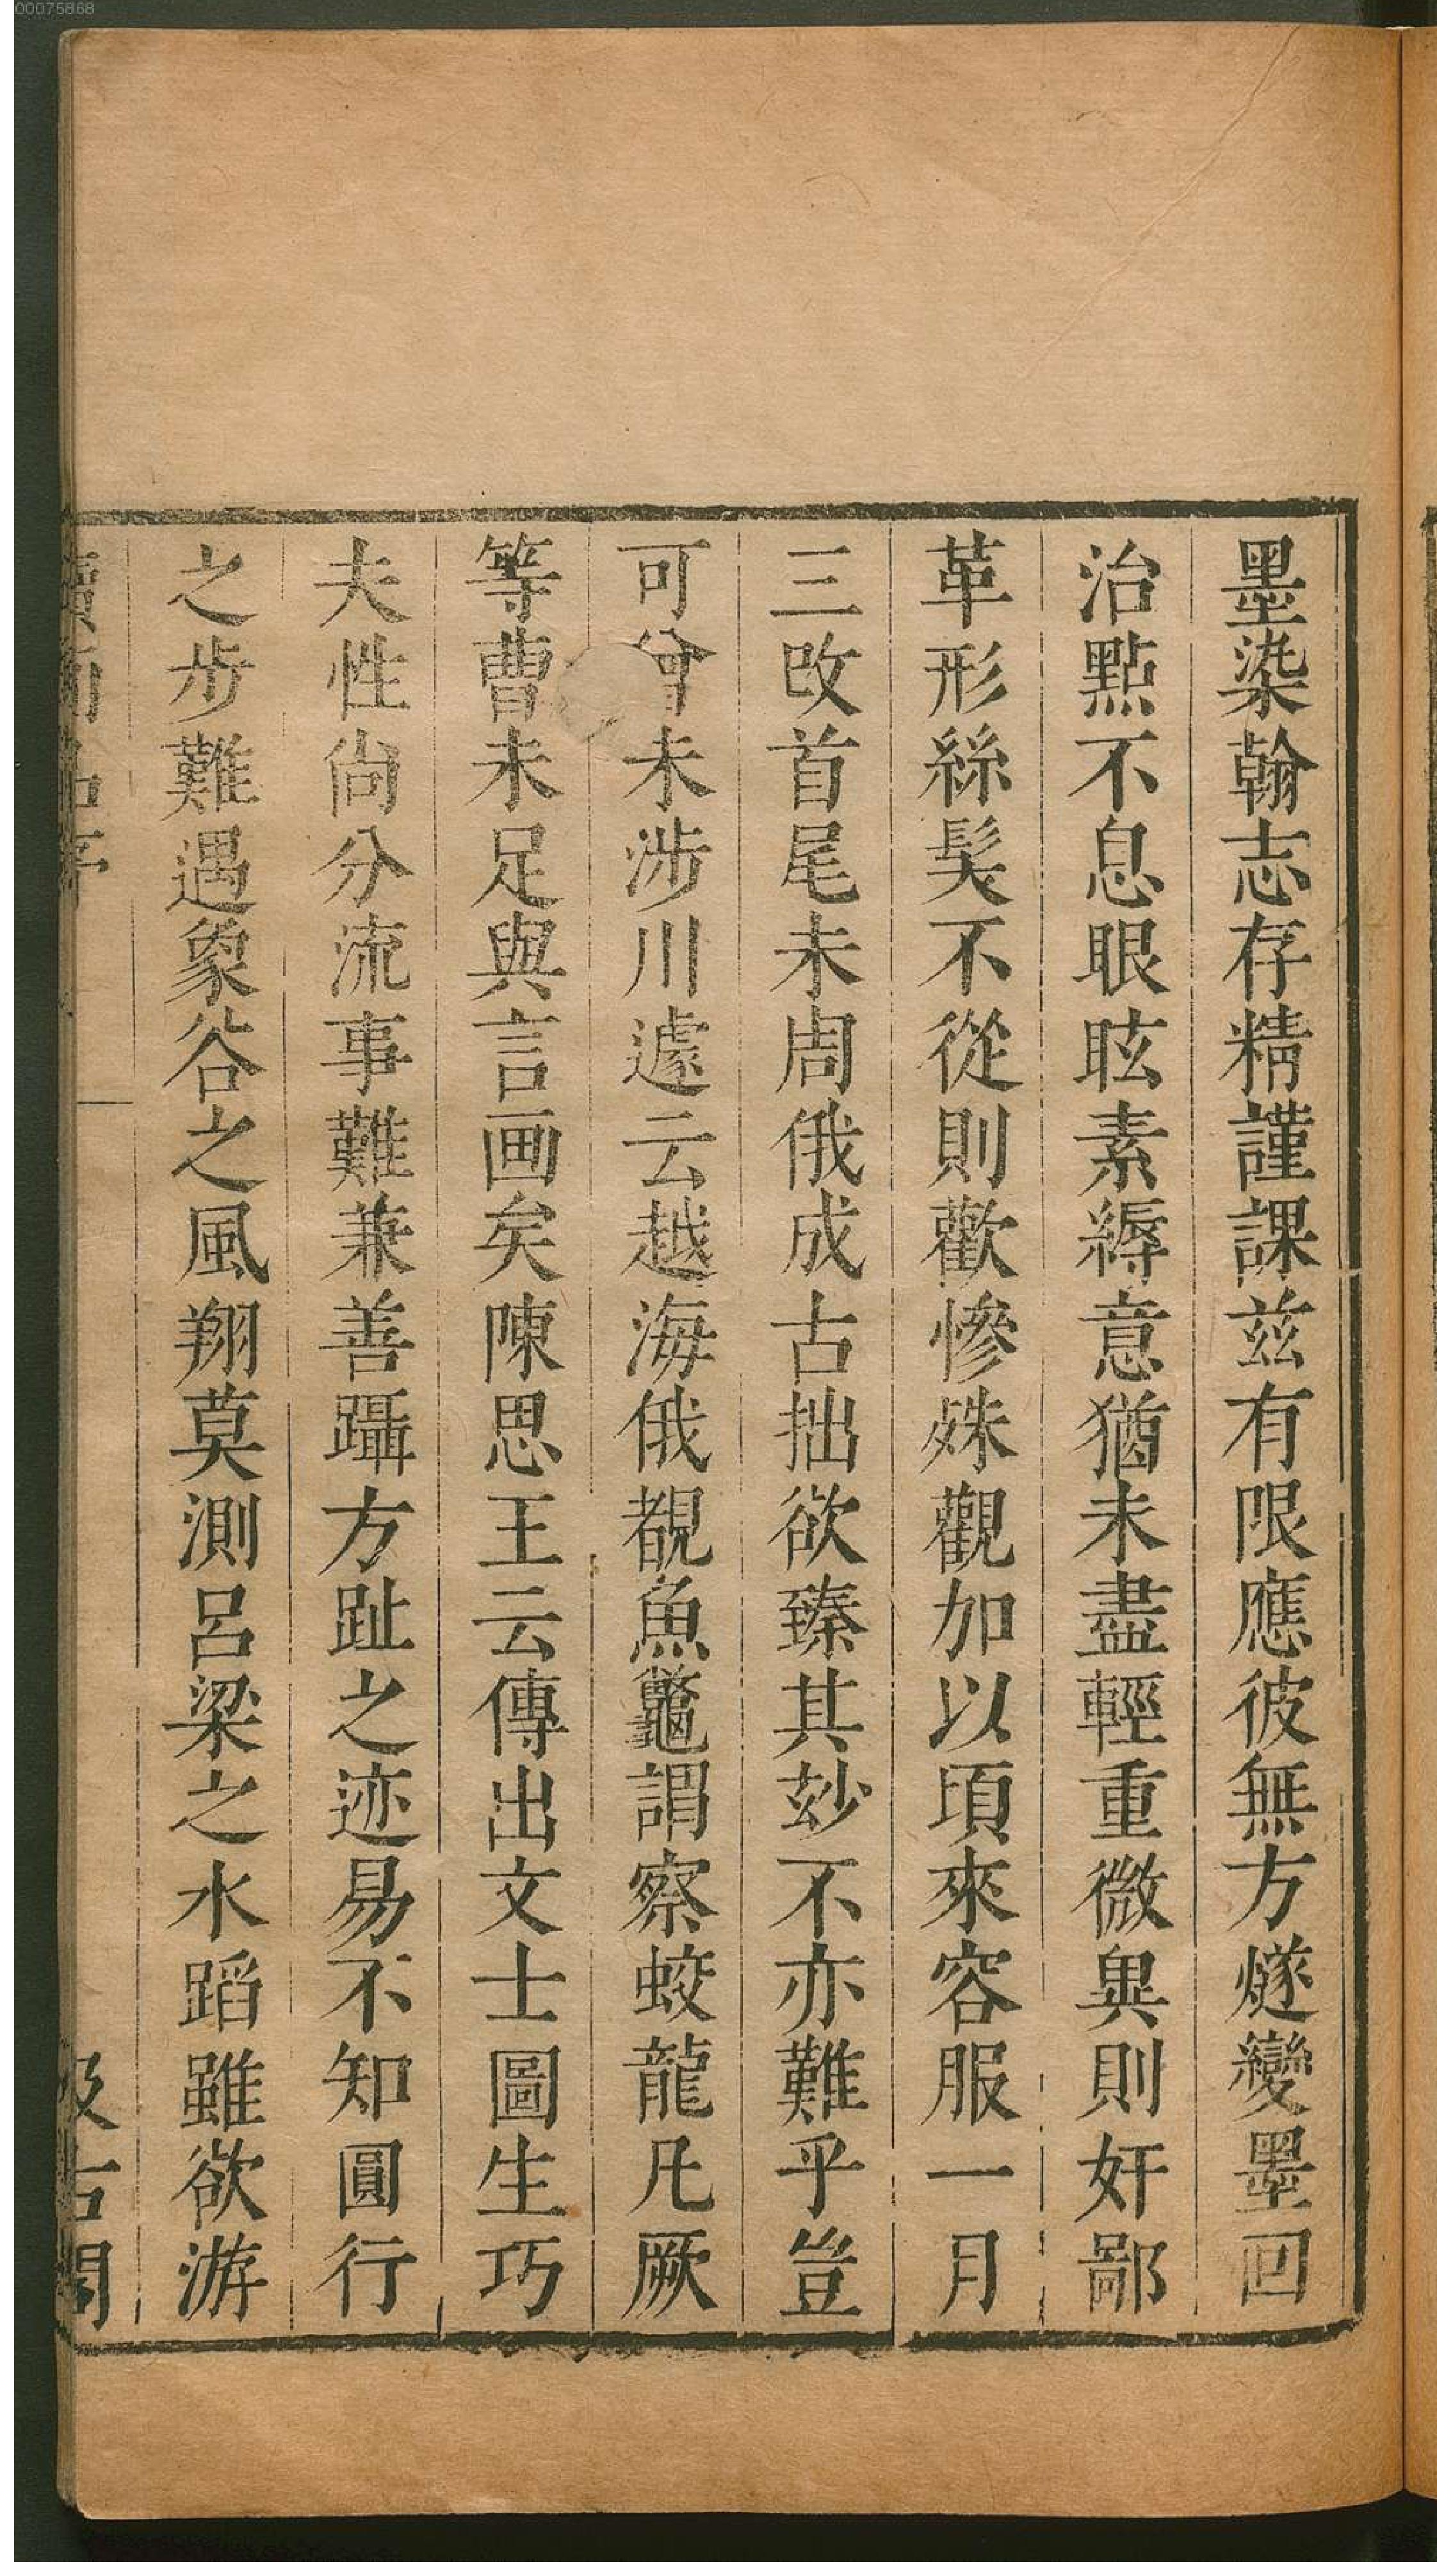 00075868
墨染翰志存精謹課兹有限應彼無方燧變墨回
治點不息眼眩素縟意猶未盡輕重微異則奸鄙
革形絲髮不從則歡慘殊觀加以頃來容服一月
三改首尾未周俄成古拙欲臻其妙不亦難乎豈
可曾未涉川遽云越海俄覩魚鼈謂察蛟龍凡厥
等曹未足與言画矣陳思王云傳出文士圖生巧
夫性尚分流事難兼善躡方趾之迹易不知圓行
之步難遇象谷之風翔莫測呂梁之水蹈雖欲游
續畫品序 汲古閣